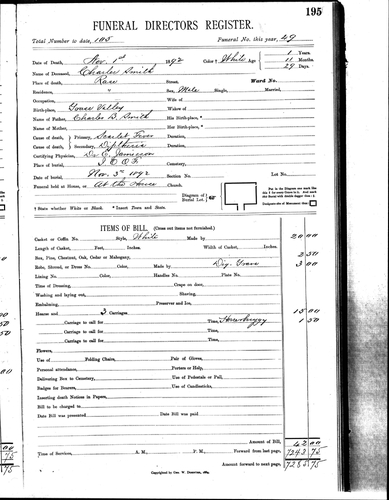 195
FUNERAL DIRECTORS REGISTER.
Total Number to date, 185 Funeral No. this year, 49
Date of Death, Nov. 1st 1892 Color * White Age 1 Years.
Name of Deceased, Charles Smith 11 Months
Place of death, Race Street. 29 Days.
Residence, " Sex, Male Single, Married, Ward No.
Occupation, Wife of
Birth-place, Grass Valley Widow of
Name of Father, Charles B. Smith His Birth-place, †
Name of Mother, Her Birth-place, †
Cause of death, Primary, Scarlet Fever Duration,
Cause of death, Secondary, Diptheria Duration,
Certifying Physician, Dr E. Jamieson
Place of burial, I.O.O.F. Cemetery,
Date of burial, Nov. 3rd 1892 Section No. Lot No.
Funeral held at House, or At the House Church. Diagram of Burial Lot,
* State whether White or Black. † Insert Town and State.
ITEMS OF BILL. (Cross out items not furnished.)
Casket or Coffin No. Style, White Made by 20 00
Length of Casket, Feet, Inches. Width of Casket, Inches.
Box, Pine, Chestnut, Oak, Cedar or Mahogany, 2 50
Robe, Shroud, or Dress No. Color, Made by Dig. Grave 3 00
Lining No. Color, Handles No. Plate No.
Time of Dressing, Crape on door,
Washing and laying out, Shaving,
Embalming, Preserver and Ice,
Hearse and 3 Carriages. 15 00
Carriage to call for Time, 1 50
Carriage to call for Time,
Carriage to call for Time,
Flowers,
Use of Folding Chairs, Pair of Gloves,
Personal attendance, Porters or Help,
Delivering Box to Cemetery, Use of Pedestals or Pall,
Badges for Bearers, Use of Candlesticks,
Inserting death Notices in Papers,
Bill to be charged to
Date Bill was presented Date Bill was paid
Amount of Bill, 42 00
Time of Services, A. M., P. M., Forward from last page, 7243 75
Amount forward to next page, 7285 75